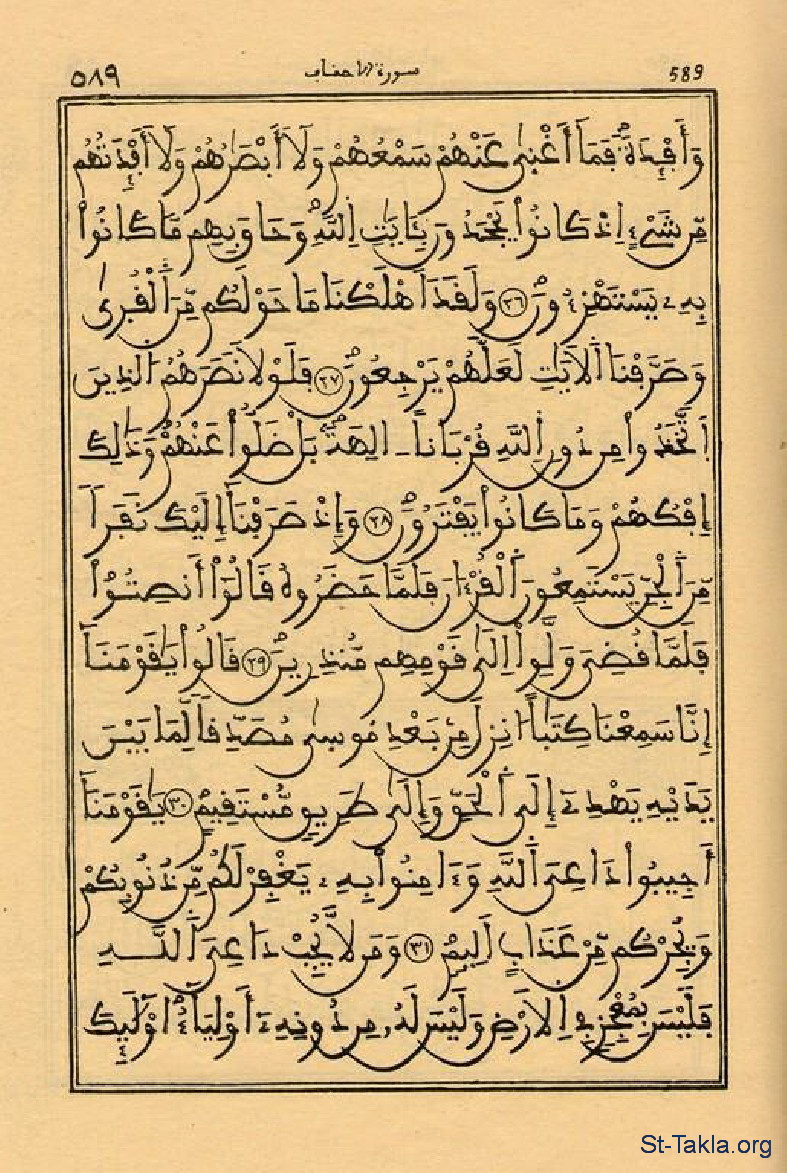 ٥٨٩ سورة الاحقاف 589
وَأَفْـِٕدَةً فَمَآ أَغْنٜىٰ عَنْهُمْ سَمْعُهُمْ وَلَآ أَبْصَٰرُهُمْ وَلَآ أَفْـِٕدَتُهُم
مِّن شَيْءٍ اِذْ كَانُواْ يَجْحَدُونَ بِـَٔايَٰتِ اِ۬للَّهِ وَحَاقَ بِهِم مَّا كَانُواْ
بِهِۦ يَسْتَهْزِءُونَ ٢٦ وَلَقَدَ اَهْلَكْنَا مَا حَوْلَكُم مِّنَ اَ۬لْقُرٜىٰ
وَصَرَّفْنَا اَ۬لَايَٰتِ لَعَلَّهُمْ يَرْجِعُونَ ٢٧ فَلَوْلَا نَصَرَهُمُ اُ۬لذِينَ
اَ۪تَّخَذُواْ مِن دُونِ اِ۬للَّهِ قُرْبَاناً اٰلِهَةَۢ بَلْ ضَلُّواْ عَنْهُمْ وَذَٰلِكَ
إِفْكُهُمْ وَمَا كَانُواْ يَفْتَرُونَ ٢٨ وَإِذْ صَرَفْنَآ إِلَيْكَ نَفَراً
مِّنَ اَ۬لْجِنِّ يَسْتَمِعُونَ اَ۬لْقُرْءَانَ فَلَمَّا حَضَرُوهُ قَالُوٓاْ أَنصِتُواْ
فَلَمَّا قُضِيَ وَلَّوِاْ اِلَىٰ قَوْمِهِم مُّنذِرِينَ ٢٩ قَالُواْ يَٰقَوْمَنَآ
إِنَّا سَمِعْنَا كِتَٰباً اُنزِلَ مِنۢ بَعْدِ مُوسٜىٰ مُصَدِّقاً لِّمَا بَيْنَ
يَدَيْهِ يَهْدِےٓ إِلَى اَ۬لْحَقِّ وَإِلَىٰ طَرِيقٍ مُّسْتَقِيمٍ ٣٠ يَٰقَوْمَنَآ
أَجِيبُواْ دَاعِيَ اَ۬للَّهِ وَءَامِنُواْ بِهِۦ يَغْفِرْ لَكُم مِّن ذُنُوبِكُمْ
وَيُجِرْكُم مِّنْ عَذَابٍ اَلِيمٍ ٣١ وَمَن لَّا يُجِبْ دَاعِيَ اَ۬للَّهِ
فَلَيْسَ بِمُعْجِزٍ فِے اِ۬لَارْضِ وَلَيْسَ لَهُۥ مِن دُونِهِۦٓ أَوْلِيَآءُ اُوْلَٰٓئِكَ
St-Takla.org